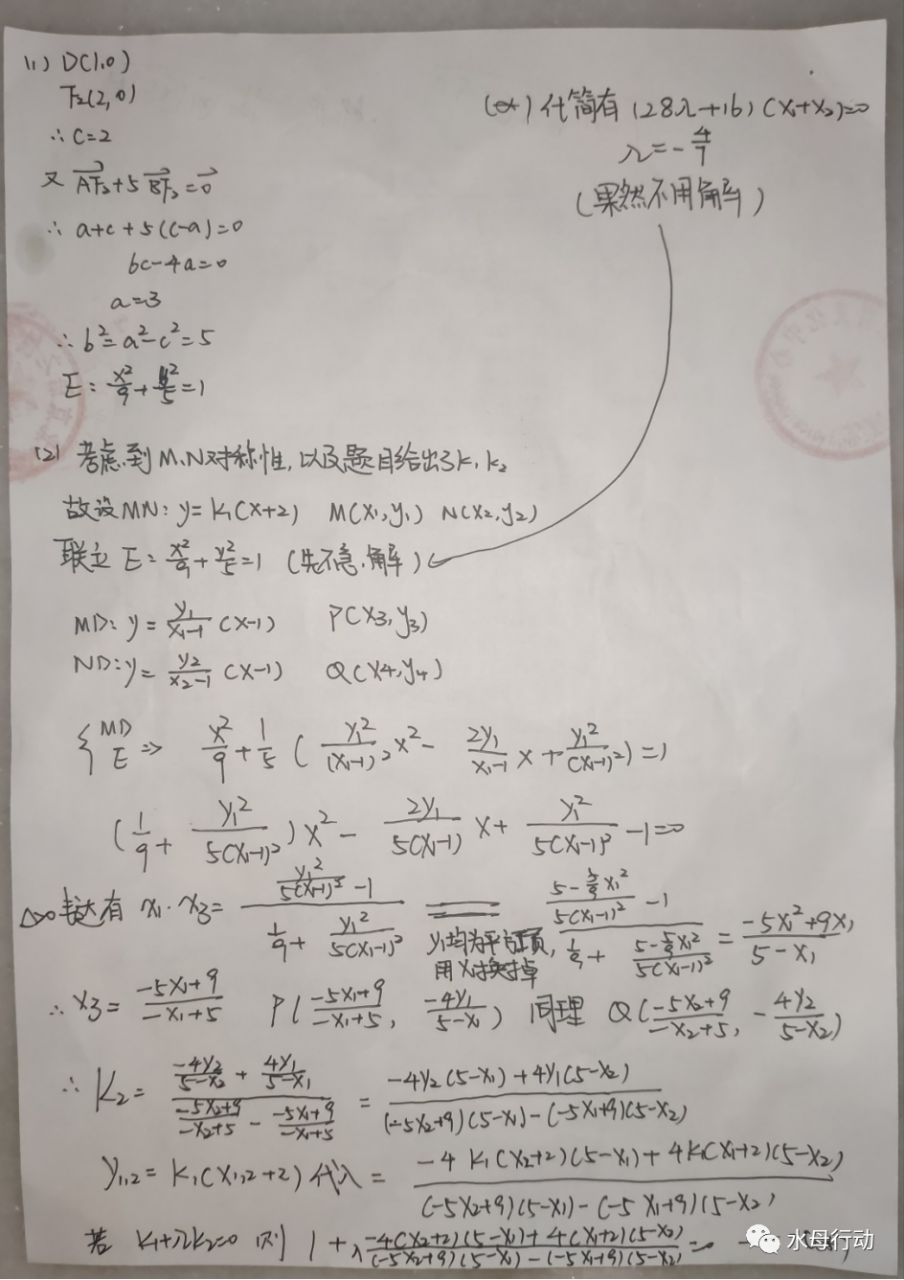 (1) D(1,0)
F₂(2,0)
∴ c=2
又 \vec{AF₂}+5\vec{BF₂}=\vec{0}
∴ a+c+5(c-a)=0
6c-4a=0
a=3
∴ b²=a²-c²=5
E: \frac{x²}{9}+\frac{y²}{5}=1
(※)化简有 (28λ+16)(x₁+x₂)=0
λ=-\frac{4}{7}
(果然不用解)
(2) 考虑到M,N对称性,以及题目给出了k₁,k₂
故设MN: y=k₁(x+2) M(x₁,y₁) N(x₂,y₂)
联立 E: \frac{x²}{9}+\frac{y²}{5}=1 (先不急,解)
MD: y=\frac{y₁}{x₁-1}(x-1) P(x₃,y₃)
ND: y=\frac{y₂}{x₂-1}(x-1) Q(x₄,y₄)
{ MD E ⇒ \frac{x²}{9}+\frac{1}{5}(\frac{y₁²}{(x₁-1)²}x²-\frac{2y₁}{x₁-1}x+\frac{y₁²}{(x₁-1)²})=1
(\frac{1}{9}+\frac{y₁²}{5(x₁-1)²})x²-\frac{2y₁}{5(x₁-1)}x+\frac{y₁²}{5(x₁-1)²}-1=0
Δ>0 韦达有 x₁·x₃=\frac{\frac{y₁²}{5(x₁-1)²}-1}{\frac{1}{9}+\frac{y₁²}{5(x₁-1)²}} = \frac{\frac{5-\frac{5}{9}x₁²}{5(x₁-1)²}-1}{\frac{1}{9}+\frac{5-\frac{5}{9}x₁²}{5(x₁-1)²}}=\frac{-5x₁²+9x₁}{5-x₁}
y₁均为平方项,
用x₁换掉
∴ x₃=\frac{-5x₁+9}{-x₁+5} P(\frac{-5x₁+9}{-x₁+5},\frac{-4y₁}{5-x₁}) 同理 Q(\frac{-5x₂+9}{-x₂+5},-\frac{4y₂}{5-x₂})
∴ k₂=\frac{\frac{-4y₂}{5-x₂}+\frac{4y₁}{5-x₁}}{\frac{-5x₂+9}{-x₂+5}-\frac{-5x₁+9}{-x₁+5}}=\frac{-4y₂(5-x₁)+4y₁(5-x₂)}{(-5x₂+9)(5-x₁)-(-5x₁+9)(5-x₂)}
y₁,₂=k₁(x₁,₂+2)代入=\frac{-4k₁(x₂+2)(5-x₁)+4k₁(x₁+2)(5-x₂)}{(-5x₂+9)(5-x₁)-(-5x₁+9)(5-x₂)}
若 k₁+λk₂=0 则 1+λ\frac{-4(x₂+2)(5-x₁)+4(x₁+2)(5-x₂)}{(-5x₂+9)(5-x₁)-(-5x₁+9)(5-x₂)}=0
水母行动